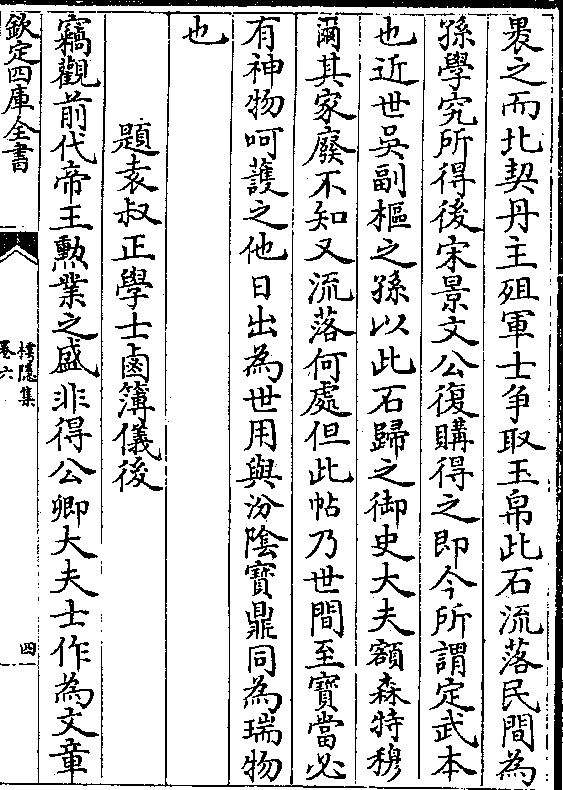 褁之而北契丹主殂軍士争取玉帛此石流落民間為
孫學究所得後宋景文公復購得之即今所謂定武本
也近世吳副樞之孫以此石歸之御史大夫額森特穆
爾其家廢不知又流落何處但此帖乃世間至寶當必
有神物呵䕶之他日出為世用與汾陰寶鼎同為瑞物
也
題袁叔正學士鹵簿儀後
竊觀前代帝王勲業之盛非得公卿大夫士作為文章
欽定四庫全書
樗隱集
卷六
四